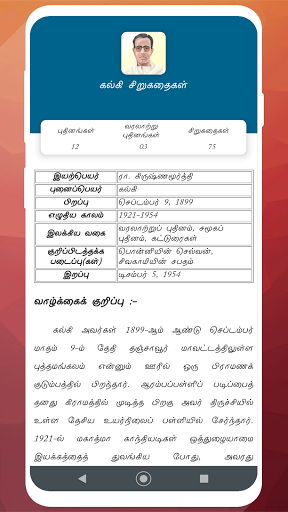 கல்கி சிறுகதைகள்
புதினங்கள்
12
வரலாற்று
புதினங்கள்
03
சிறுகதைகள்
75
இயற்பெயர் ரா. கிருஷ்ணமூர்த்தி
புனைப்பெயர் கல்கி
பிறப்பு செப்டம்பர் 9, 1899
எழுதிய காலம் 1921-1954
இலக்கிய வகை வரலாற்றுப் புதினம், சமூகப்
புதினம், கட்டுரைகள்
குறிப்பிடத்தக்க பொன்னியின் செல்வன்,
படைப்பு(கள்) சிவகாமியின் சபதம்
இறப்பு டிசம்பர் 5, 1954
வாழ்க்கைக் குறிப்பு :-
கல்கி அவர்கள் 1899-ஆம் ஆண்டு செப்டம்பர்
மாதம் 9-ம் தேதி தஞ்சாவூர் மாவட்டத்திலுள்ள
புத்தமங்கலம் என்னும் ஊரில் ஒரு பிராமணக்
குடும்பத்தில் பிறந்தார். ஆரம்பப்பள்ளி படிப்பைத்
தனது கிராமத்தில் முடித்த பிறகு அவர் திருச்சியில்
உள்ள தேசிய உயர்நிலைப் பள்ளியில் சேர்ந்தார்.
1921-ல் மகாத்மா காந்தியடிகள் ஒத்துழையாமை
இயக்கத்தைத் துவங்கிய போது, அவரது